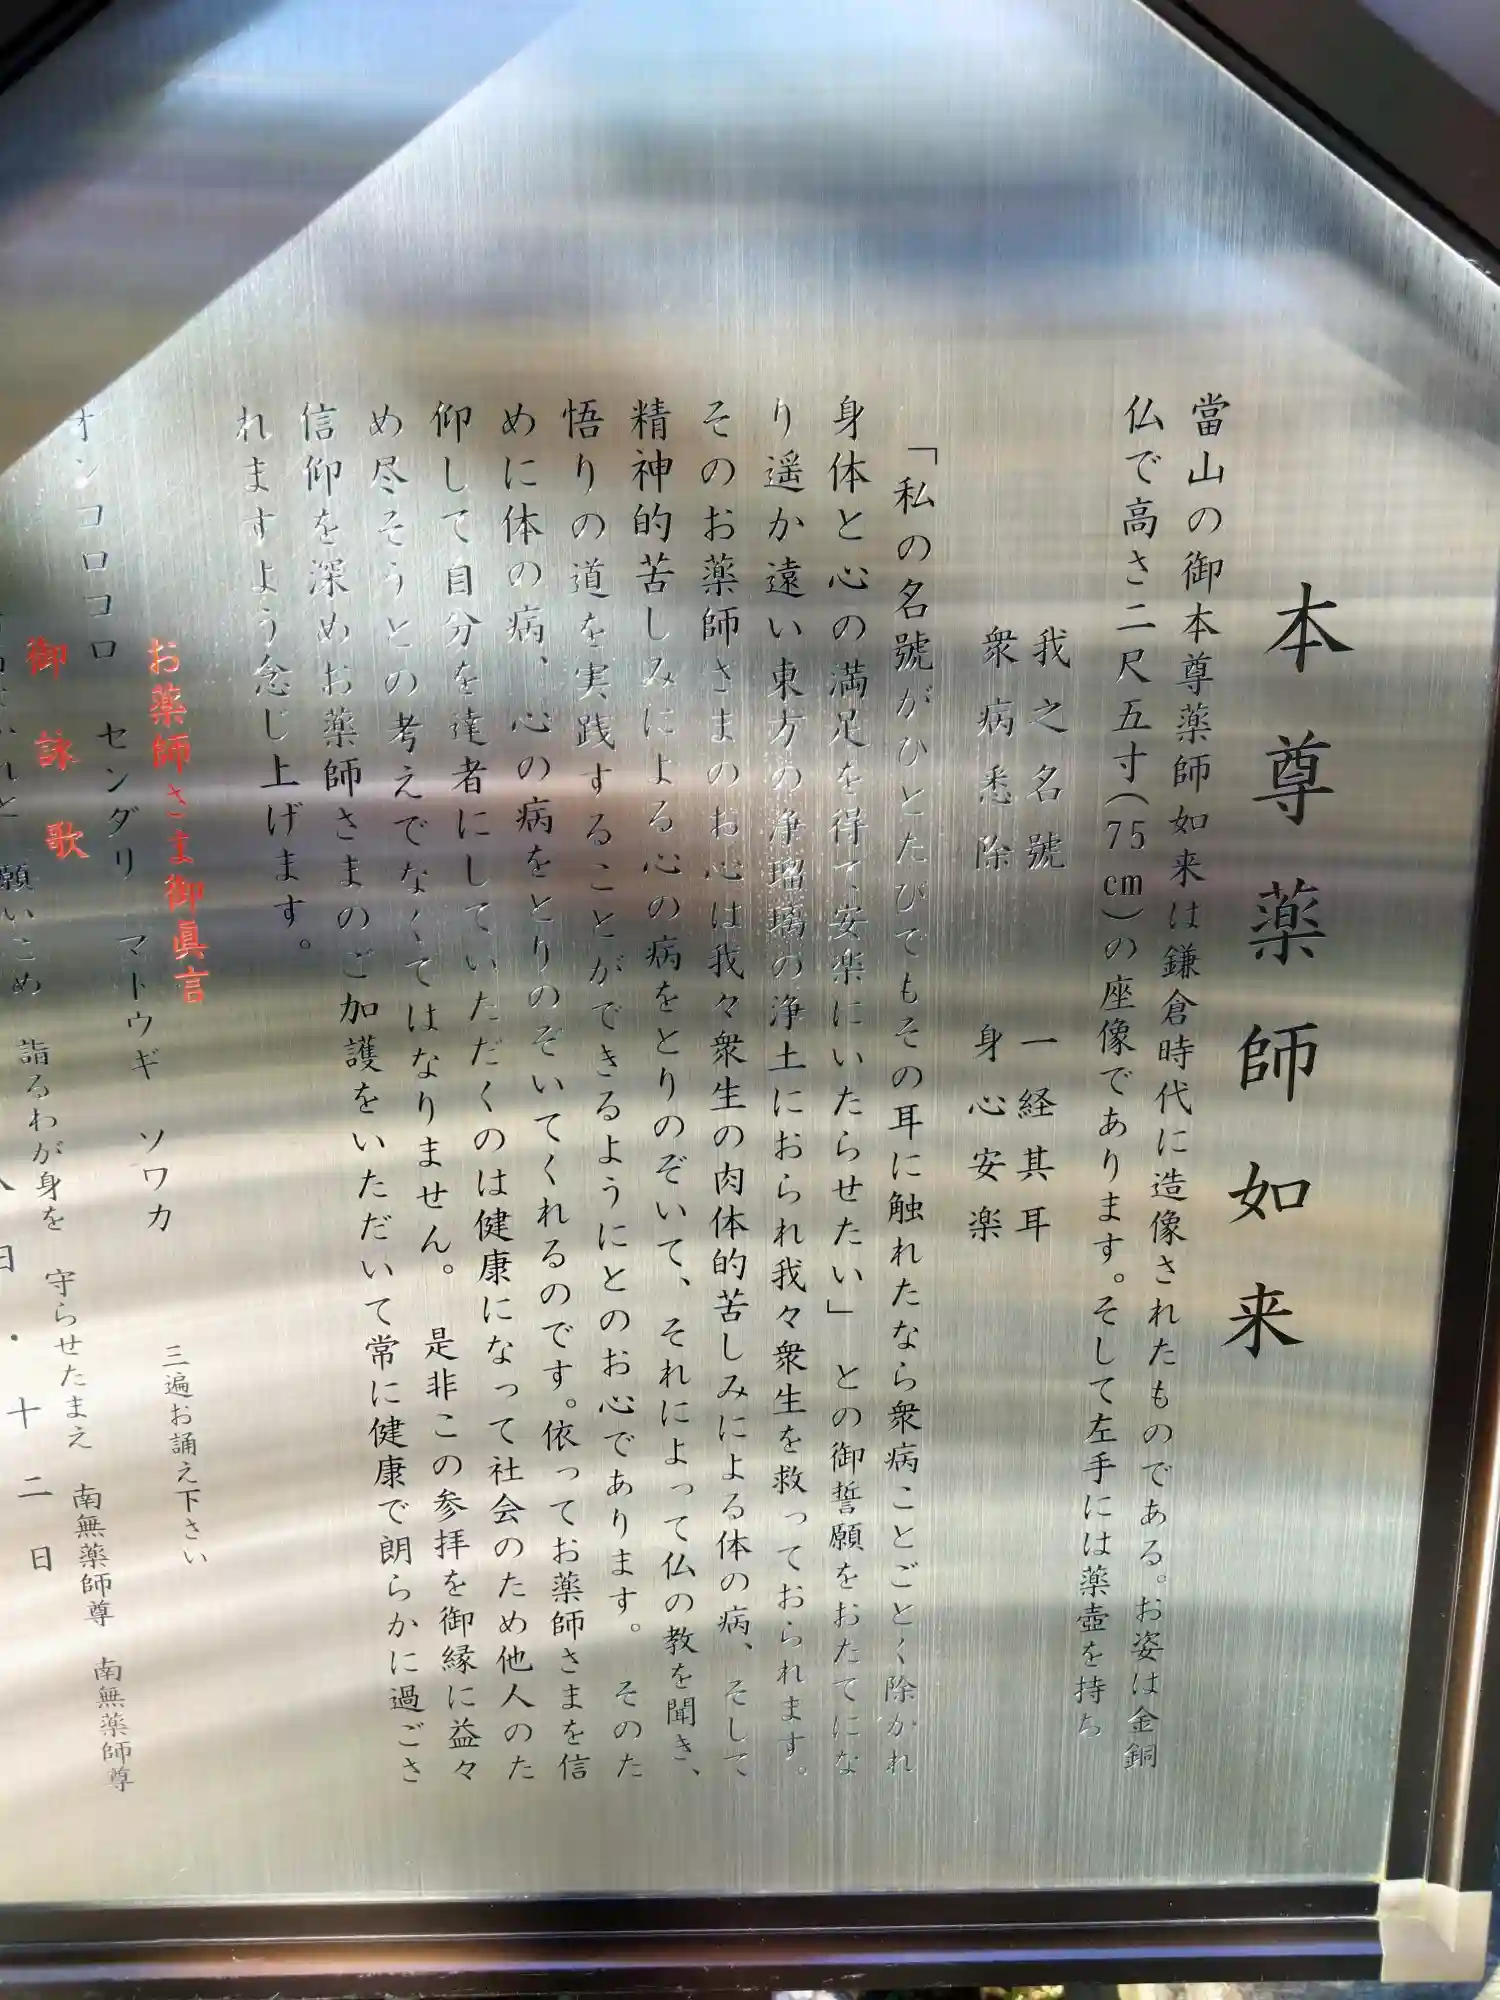 本尊薬師如来
當山の御本尊薬師如来は鎌倉時代に造像されたものである。お姿は金銅
仏で高さ二尺五寸(75cm)の座像であります。そして左手には薬壺を持ち
我之名號 一経其耳
衆病悉除 身心安楽
「私の名號がひとたびでもその耳に触れたなら衆病ことごとく除かれ
身体と心の満足を得て、安楽にいたらせたい」との御誓願をおたてにな
り遥か遠い東方の浄瑠璃の浄土におられ我々衆生を救っておられます。
そのお薬師さまのお心は我々衆生の肉体的苦しみによる体の病、そして
精神的苦しみによる心の病をとりのぞいて、それによって仏の教を聞き、
悟りの道を実践することができるようにとのお心であります。そのた
めに体の病、心の病をとりのぞいてくれるのです。依ってお薬師さまを信
仰して自分を達者にしていただくのは健康になって社会のため他人のた
め尽そうとの考えでなくてはなりません。是非この参拝を御縁に益々
信仰を深めお薬師さまのご加護をいただいて常に健康で朗らかに過ごさ
れますよう念じ上げます。
お薬師さま御真言
オンコロコロ センダリ マトウギ ソワカ 三遍お誦え下さい
御詠歌
願いこめ 詣るわが身を 守らせたまえ 南無薬師尊 南無薬師尊
日・十二日